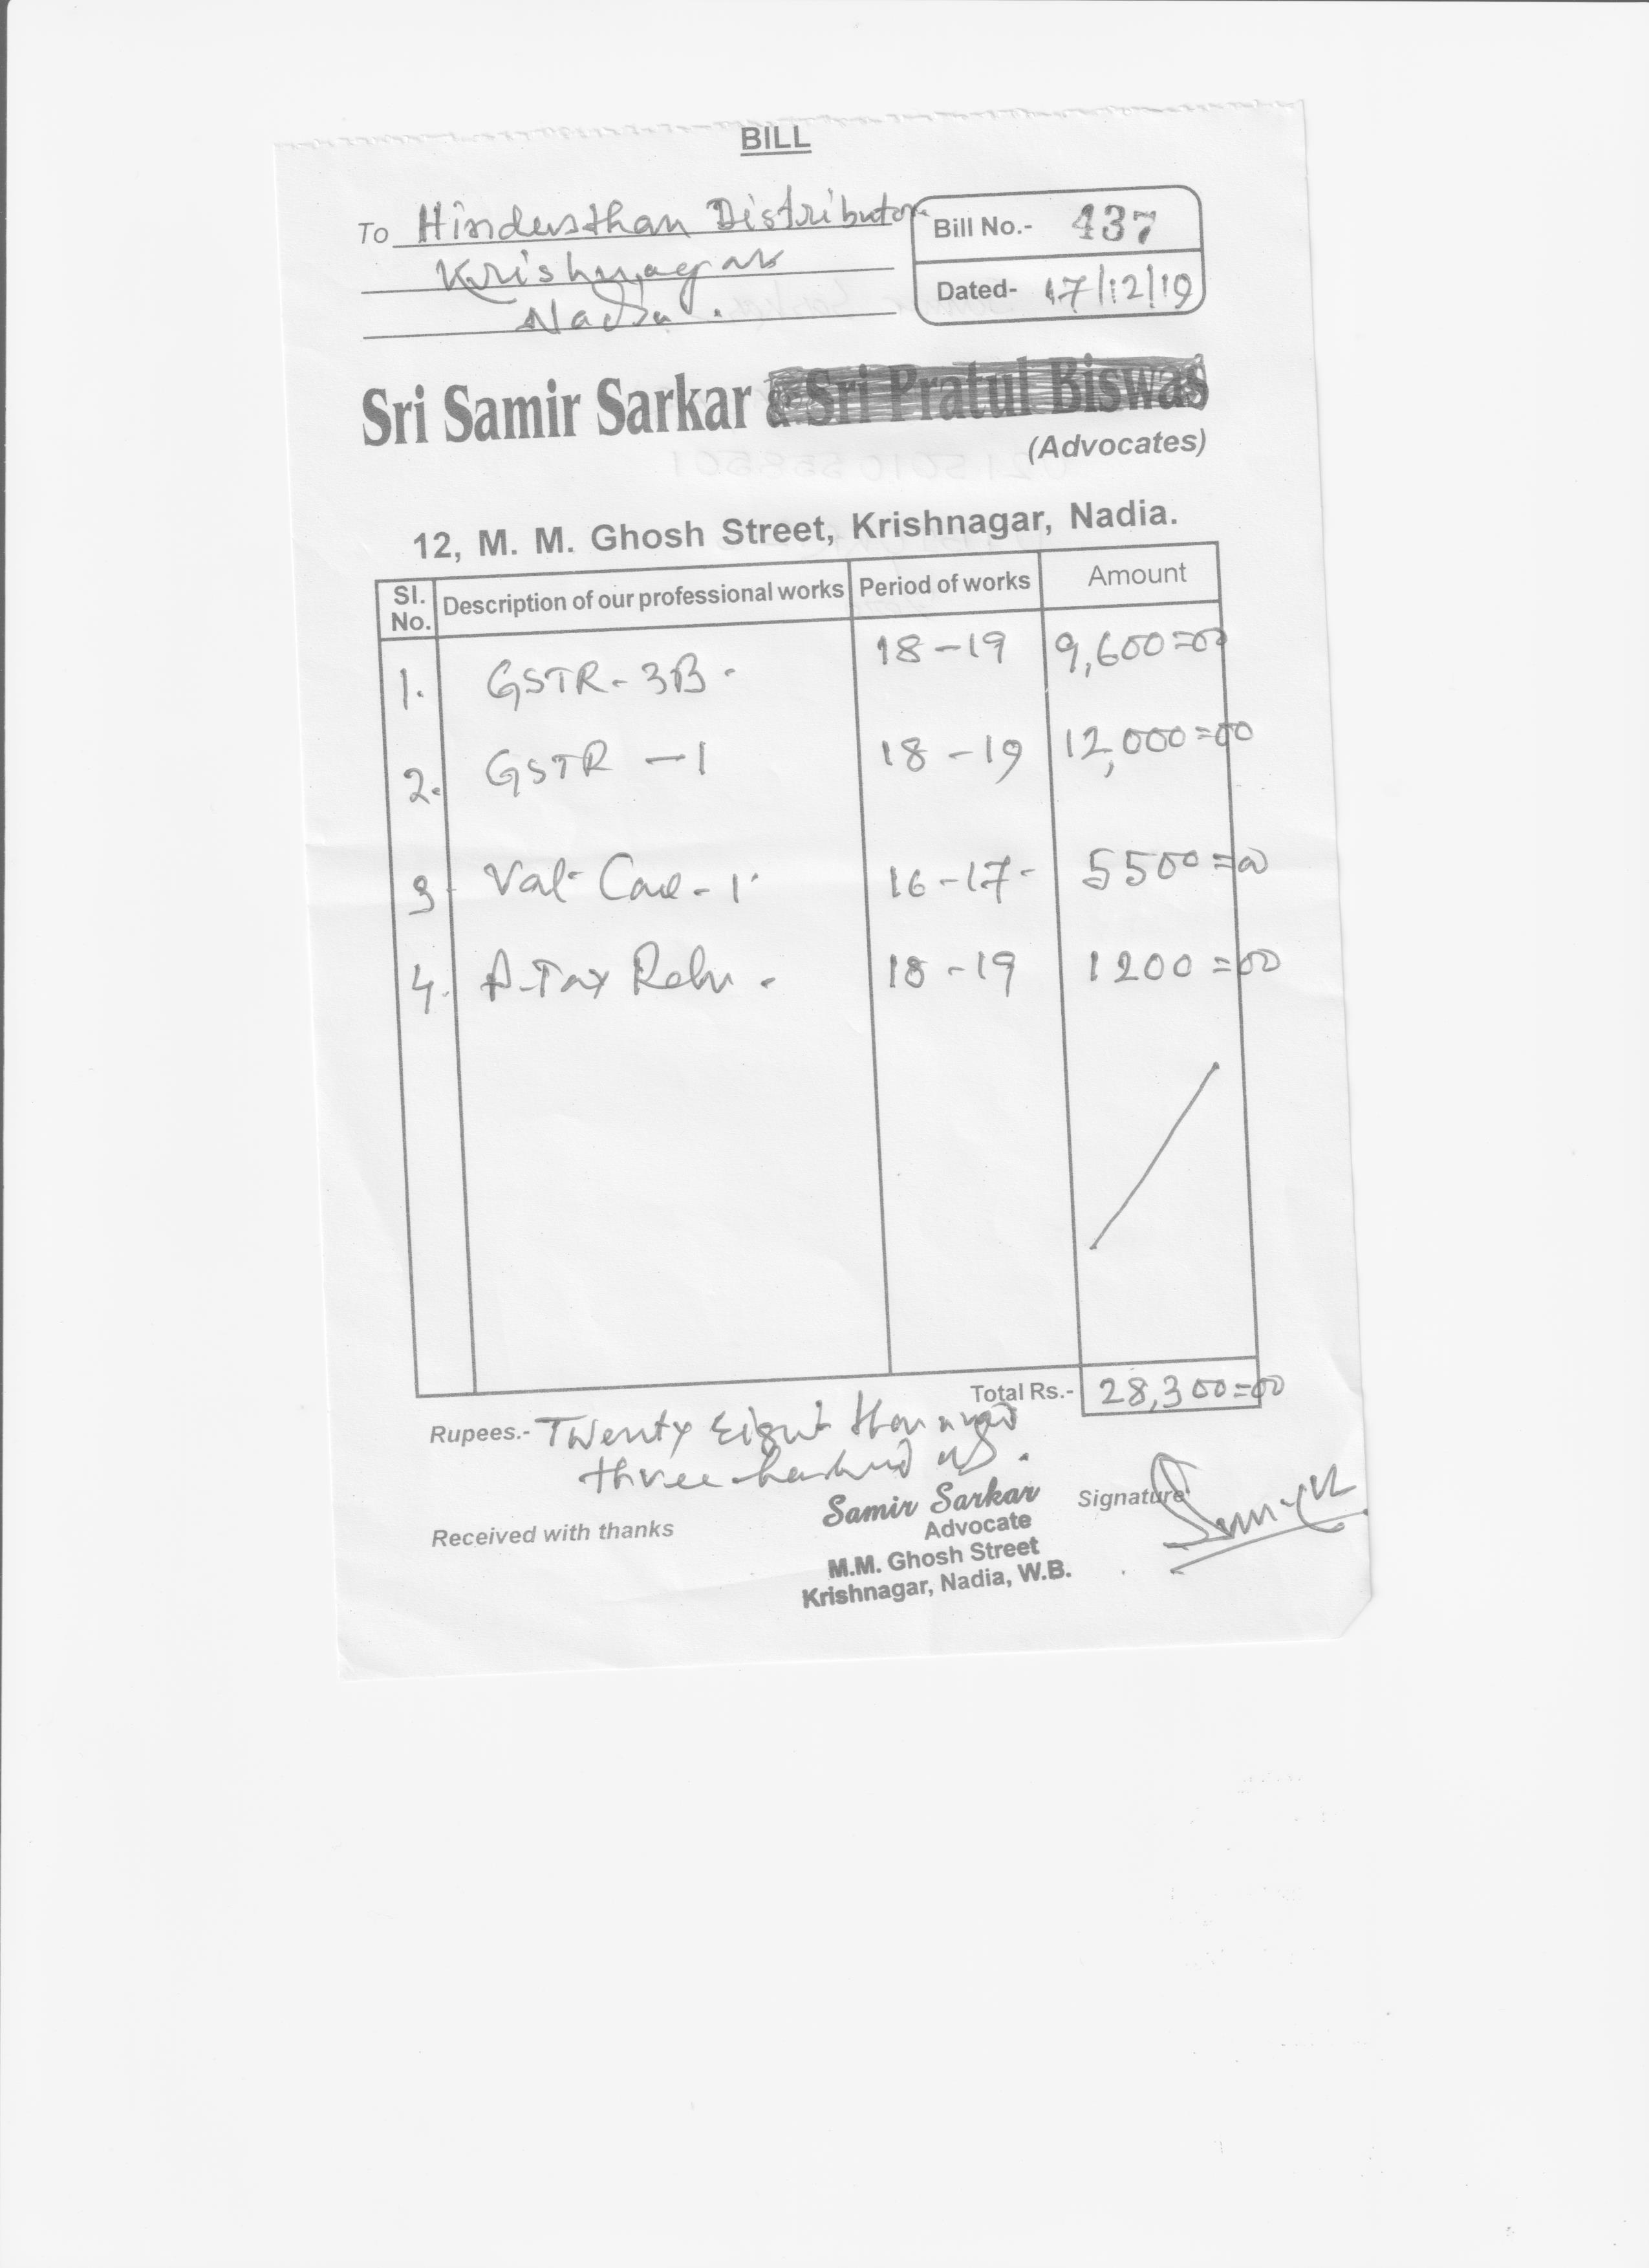 BILL
To Hindusthan Distributor
Krishnagar
Nadia.
Bill No.- 437
Dated- 17/12/19
Sri Samir Sarkar & Sri Pratul Biswas
(Advocates)
12, M. M. Ghosh Street, Krishnagar, Nadia.
Sl. No. Description of our professional works Period of works Amount
1. GSTR-3B. 18-19 9,600=00
2. GSTR-1 18-19 12,000=00
3 Vat Case-1 16-17- 5500=00
4. P-Tax 18-19 1200=00
Total Rs.- 28,300=00
Rupees.- Twenty Eight thousand
three hundred
Samir Sarkar
Advocate
M.M. Ghosh Street
Krishnagar, Nadia, W.B.
Signature
Received with thanks